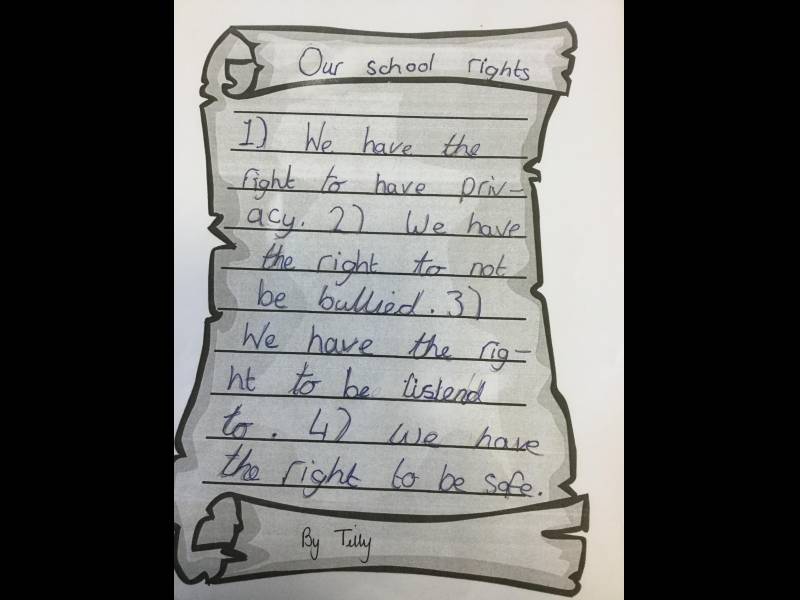 Our school rights
1) We have the
right to have priv-
acy. 2) We have
the right to not
be bullied. 3)
We have the rig-
ht to be listend
to. 4) We have
the right to be safe.
By Tilly